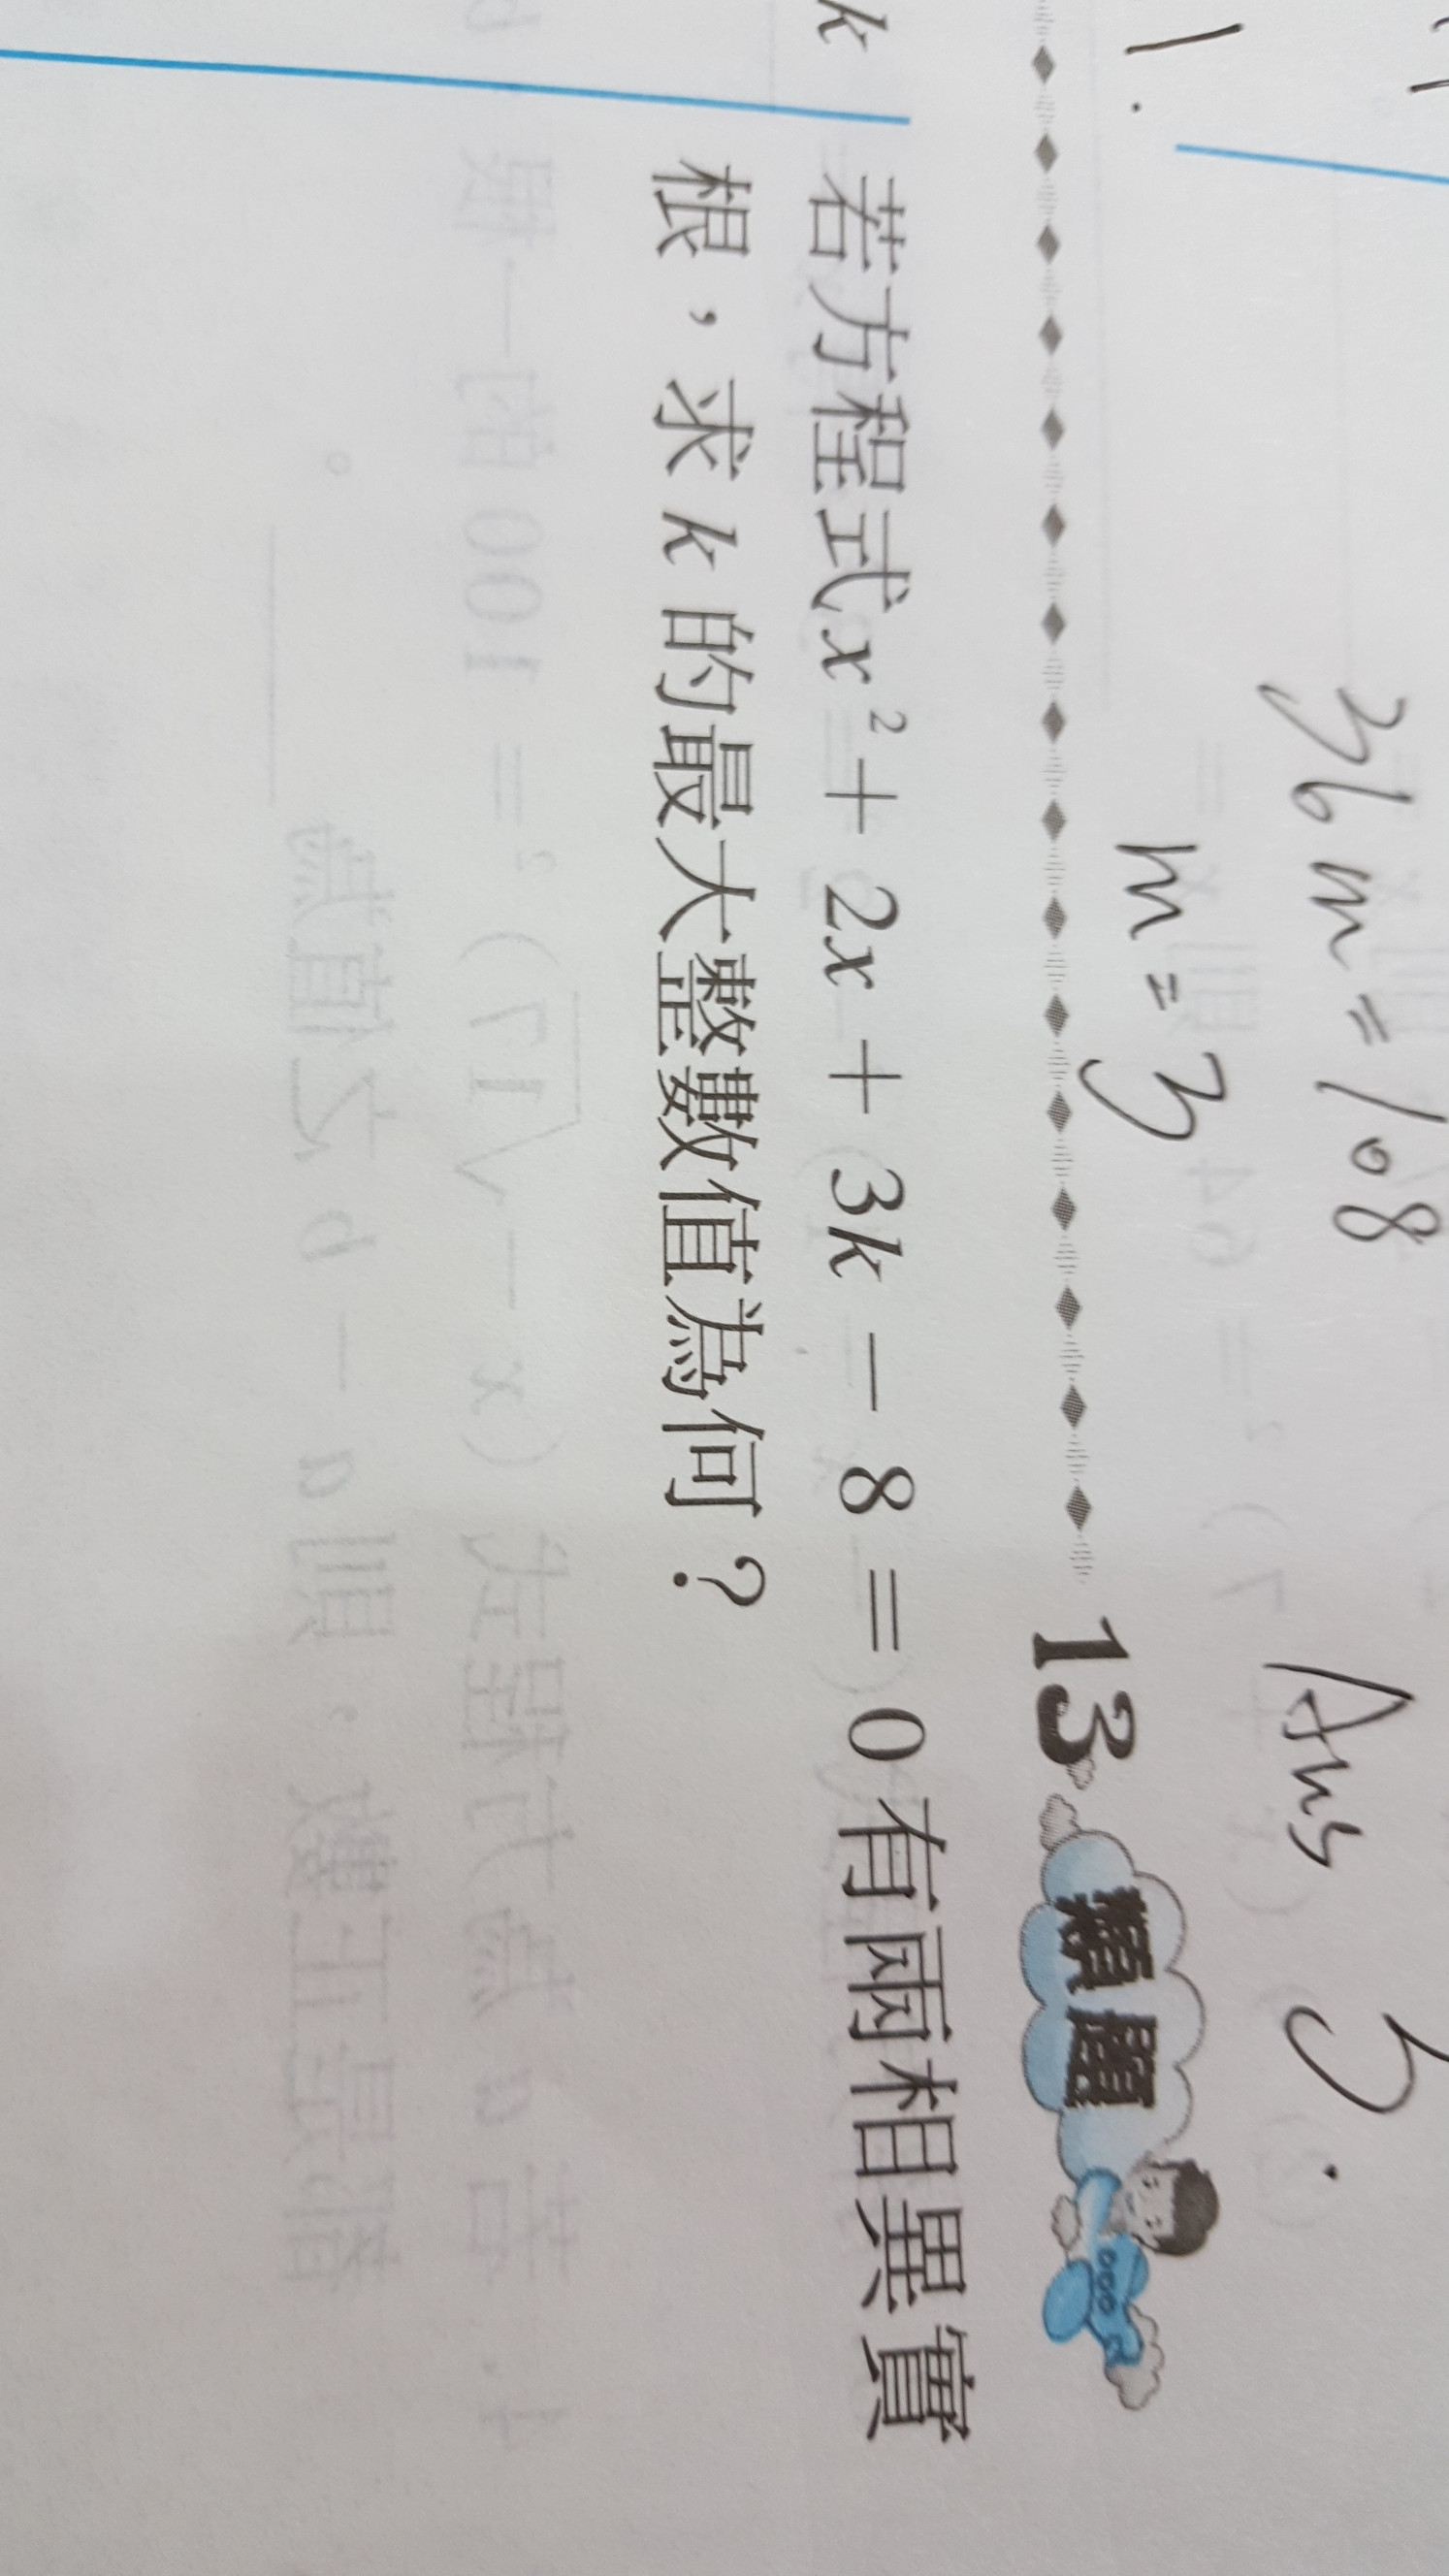 36m = 108
m = 3
Ans 3.
1.
13 類題
k
若方程式x² + 2x + 3k − 8 = 0有兩相異實
根，求 k 的最大整數值為何？